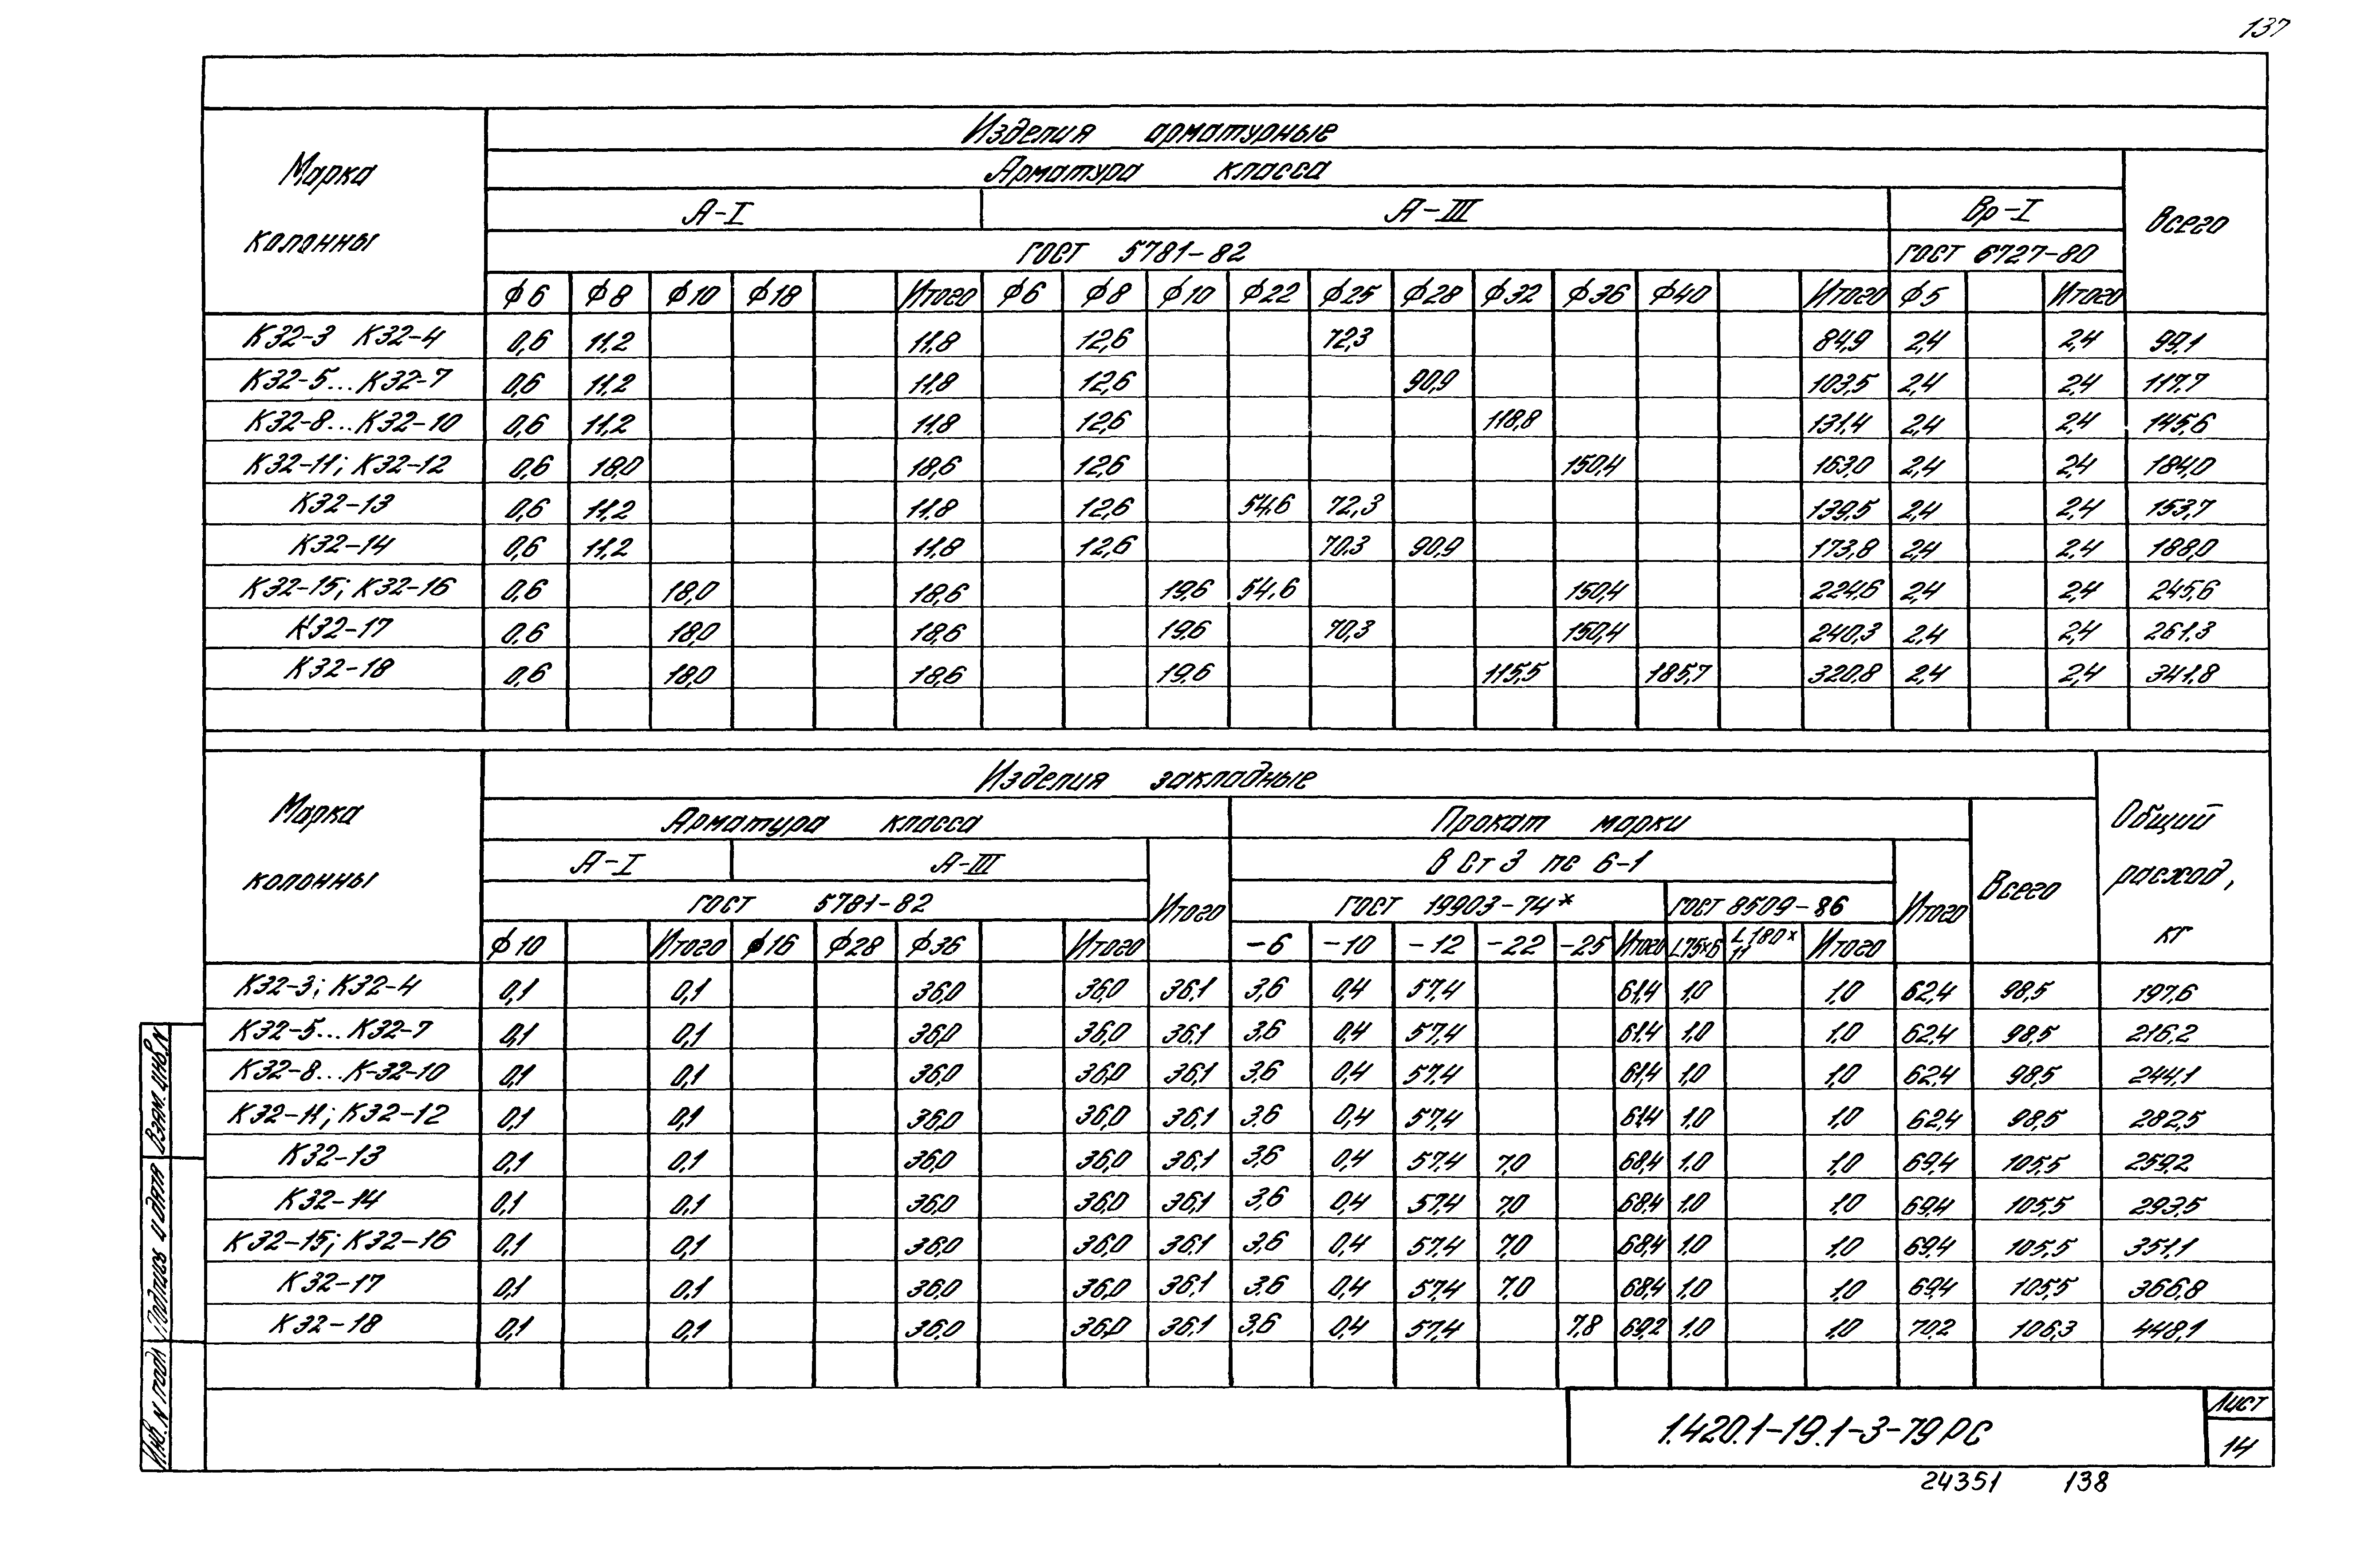 137
Марка колонны
Изделия арматурные
Арматура класса
Всего
А-I А-III Вр-I
ГОСТ 5781-82 ГОСТ 6727-80
ϕ6 ϕ8 ϕ10 ϕ18 Итого ϕ6 ϕ8 ϕ10 ϕ22 ϕ25 ϕ28 ϕ32 ϕ36 ϕ40 Итого ϕ5 Итого
К32-3 К32-4 0,6 11,2 11,8 12,6 72,3 84,9 2,4 2,4 99,1
К32-5...К32-7 0,6 11,2 11,8 12,6 90,9 103,5 2,4 2,4 117,7
К32-8...К32-10 0,6 11,2 11,8 12,6 118,8 131,4 2,4 2,4 145,6
К32-11; К32-12 0,6 18,0 18,6 12,6 150,4 163,0 2,4 2,4 184,0
К32-13 0,6 11,2 11,8 12,6 54,6 72,3 139,5 2,4 2,4 153,7
К32-14 0,6 11,2 11,8 12,6 70,3 90,9 173,8 2,4 2,4 188,0
К32-15; К32-16 0,6 18,0 18,6 19,6 54,6 150,4 224,6 2,4 2,4 245,6
К32-17 0,6 18,0 18,6 19,6 70,3 150,4 240,3 2,4 2,4 261,3
К32-18 0,6 18,0 18,6 19,6 115,5 185,7 320,8 2,4 2,4 341,8
Марка колонны
Изделия закладные
Общий расход, кг
Арматура класса Прокат марки
Всего
А-I А-III Итого В Ст 3 пс 6-1 Итого
ГОСТ 5781-82 ГОСТ 19903-74* ГОСТ 8509-86
ϕ10 Итого ϕ16 ϕ28 ϕ36 Итого -6 -10 -12 -22 -25 Итого L75×6 L180×11 Итого
К32-3; К32-4 0,1 0,1 36,0 36,0 36,1 3,6 0,4 57,4 61,4 1,0 1,0 62,4 98,5 197,6
К32-5...К32-7 0,1 0,1 36,0 36,0 36,1 3,6 0,4 57,4 61,4 1,0 1,0 62,4 98,5 216,2
К32-8...К-32-10 0,1 0,1 36,0 36,0 36,1 3,6 0,4 57,4 61,4 1,0 1,0 62,4 98,5 244,1
К32-11; К32-12 0,1 0,1 36,0 36,0 36,1 3,6 0,4 57,4 61,4 1,0 1,0 62,4 98,5 282,5
К32-13 0,1 0,1 36,0 36,0 36,1 3,6 0,4 57,4 7,0 68,4 1,0 1,0 69,4 105,5 259,2
К32-14 0,1 0,1 36,0 36,0 36,1 3,6 0,4 57,4 7,0 68,4 1,0 1,0 69,4 105,5 293,5
К32-15; К32-16 0,1 0,1 36,0 36,0 36,1 3,6 0,4 57,4 7,0 68,4 1,0 1,0 69,4 105,5 351,1
К32-17 0,1 0,1 36,0 36,0 36,1 3,6 0,4 57,4 7,0 68,4 1,0 1,0 69,4 105,5 366,8
К32-18 0,1 0,1 36,0 36,0 36,1 3,6 0,4 57,4 7,8 69,2 1,0 1,0 70,2 106,3 448,1
Взам. инв. N
Подпись и дата
Инв. N подл
1.420.1-19.1-3-79РС
Лист
14
24351 138